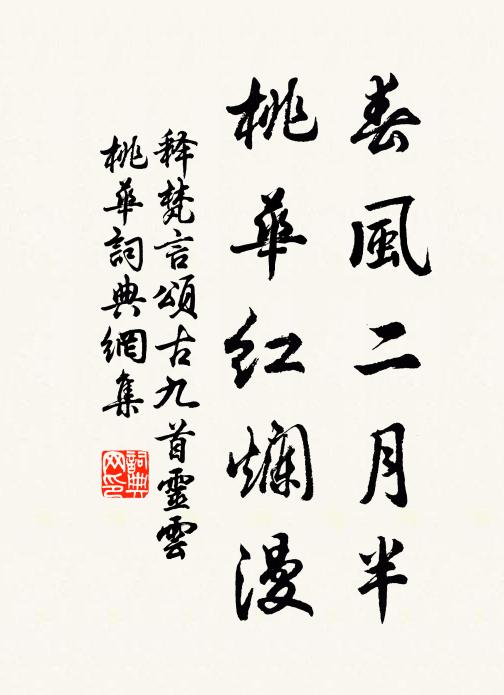 春風二月半
桃華红爛漫
释梵言頌古九首靈雲
桃华詞典網集
詞典网印